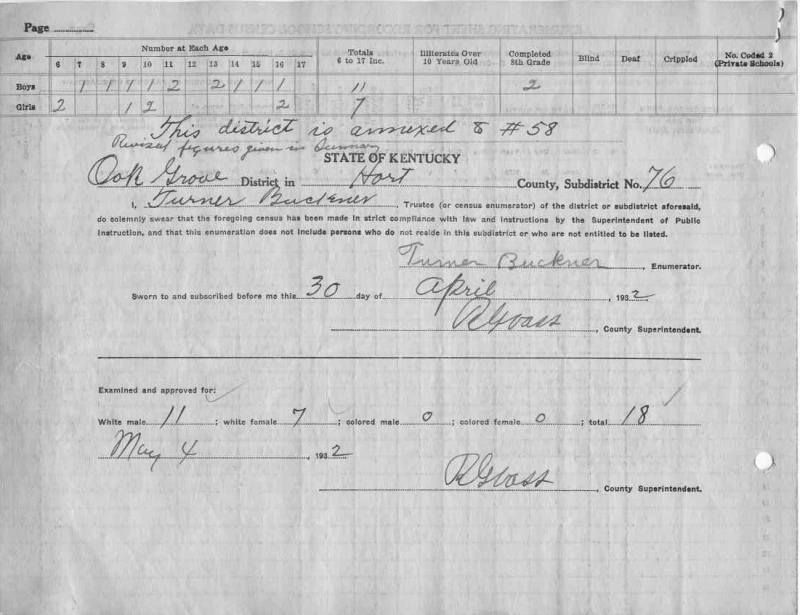 Page
Age Number at Each Age Totals 6 to 17 Inc. Illiterates Over 10 Years Old Completed 8th Grade Blind Deaf Crippled No. Coded 2 (Private Schools)
6 7 8 9 10 11 12 13 14 15 16 17
Boys 1 1 1 1 2 2 1 1 1 11 2
Girls 2 1 2 2 7
This district is annexed to #58
Revised figures given in Summary
STATE OF KENTUCKY
Oak Grove District in Hart County, Subdistrict No. 76
I, Turner Buckner, Trustee (or census enumerator) of the district or subdistrict aforesaid,
do solemnly swear that the foregoing census has been made in strict compliance with law and instructions by the Superintendent of Public
Instruction, and that this enumeration does not include persons who do not reside in this subdistrict or who are not entitled to be listed.
Turner Buckner, Enumerator.
Sworn to and subscribed before me this 30 day of April, 1932
RGVass, County Superintendent.
Examined and approved for:
White male 11; white female 7; colored male 0; colored female 0; total 18
May 4, 1932
RGVass, County Superintendent.